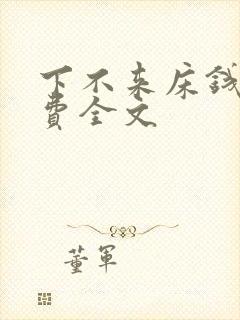 下不来床钱
费全文
董軍